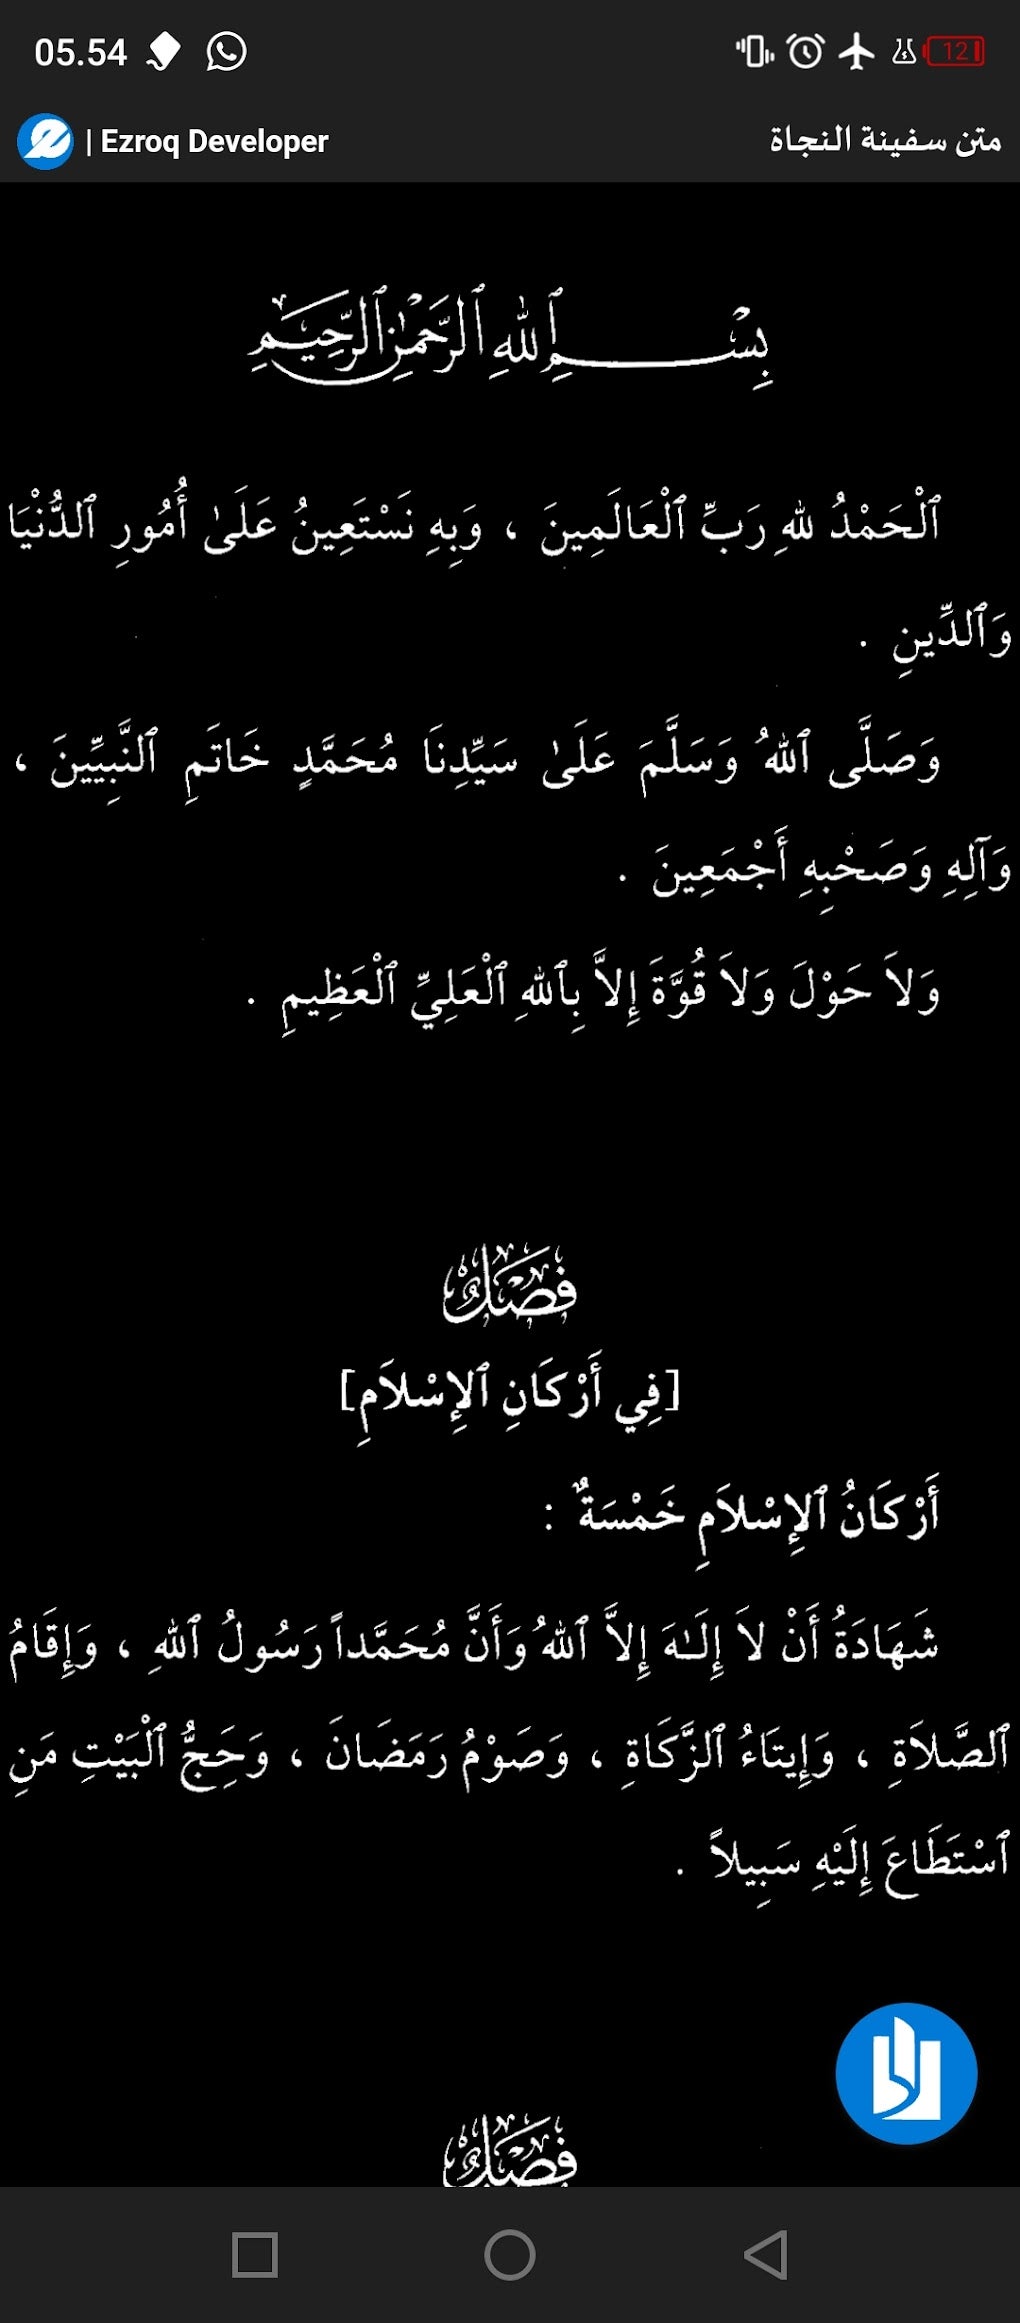 05.54
12
| Ezroq Developer
متن سفينة النجاة
بِسْمِ ٱللهِ ٱلرَّحْمٰنِ ٱلرَّحِيمِ
ٱلْحَمْدُ للهِ رَبِّ ٱلْعَالَمِينَ ، وَبِهِ نَسْتَعِينُ عَلَىٰ أُمُورِ ٱلدُّنْيَا
وَٱلدِّينِ .
وَصَلَّى ٱللهُ وَسَلَّمَ عَلَىٰ سَيِّدِنَا مُحَمَّدٍ خَاتَمِ ٱلنَّبِيِّينَ ،
وَآلِهِ وَصَحْبِهِ أَجْمَعِينَ .
وَلاَ حَوْلَ وَلاَ قُوَّةَ إِلاَّ بِٱللهِ ٱلْعَلِيِّ ٱلْعَظِيمِ .
فَصْلٌ
[فِي أَرْكَانِ ٱلإِسْلاَمِ]
أَرْكَانُ ٱلإِسْلاَمِ خَمْسَةٌ :
شَهَادَةُ أَنْ لاَ إِلَـٰهَ إِلاَّ ٱللهُ وَأَنَّ مُحَمَّداً رَسُولُ ٱللهِ ، وَإِقَامُ
ٱلصَّلاَةِ ، وَإِيتَاءُ ٱلزَّكَاةِ ، وَصَوْمُ رَمَضَانَ ، وَحَجُّ ٱلْبَيْتِ مَنِ
ٱسْتَطَاعَ إِلَيْهِ سَبِيلاً .
فَصْلٌ